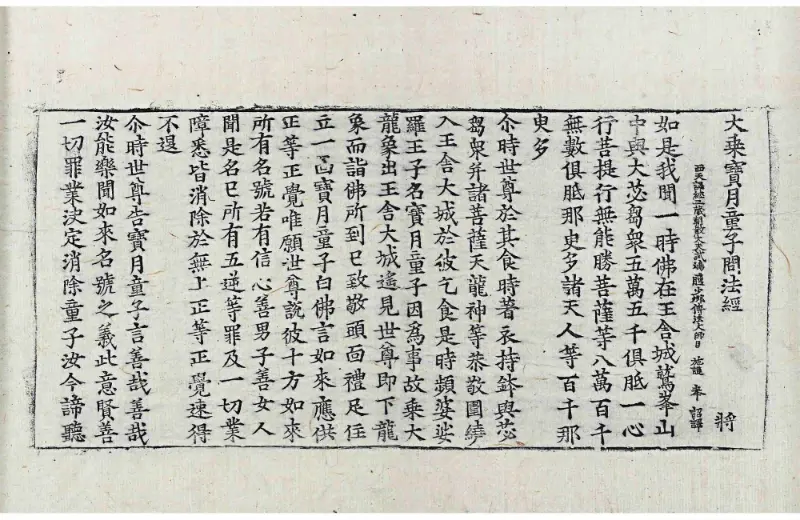 大乘寶月童子問法經 將
西天譯經三藏朝散大夫試鴻臚少卿傳法大師臣 施護 奉 詔譯
如是我聞一時佛在王舍城鷲峯山
中與大苾芻衆五萬五千俱胝一心
行菩提行無能勝菩薩等八萬百千
無數俱胝那庾多諸天人等百千那
庾多
尒時世尊於其食時著衣持鉢與苾
芻衆并諸菩薩天龍神等恭敬圍繞
入王舍大城於彼乞食是時頻婆娑
羅王子名寶月童子因爲事故乘大
龍象出王舍大城遙見世尊即下龍
象而詣佛所到已致敬頭面禮足住
立一面寶月童子白佛言如來應供
正等正覺唯願世尊說彼十方如來
所有名號若有信心善男子善女人
聞是名已所有五逆等罪及一切業
障悉皆消除於無上正等正覺速得
不退
尒時世尊告寶月童子言善哉善哉
汝能樂聞如來名號之義此意賢善
一切罪業決定消除童子汝今諦聽